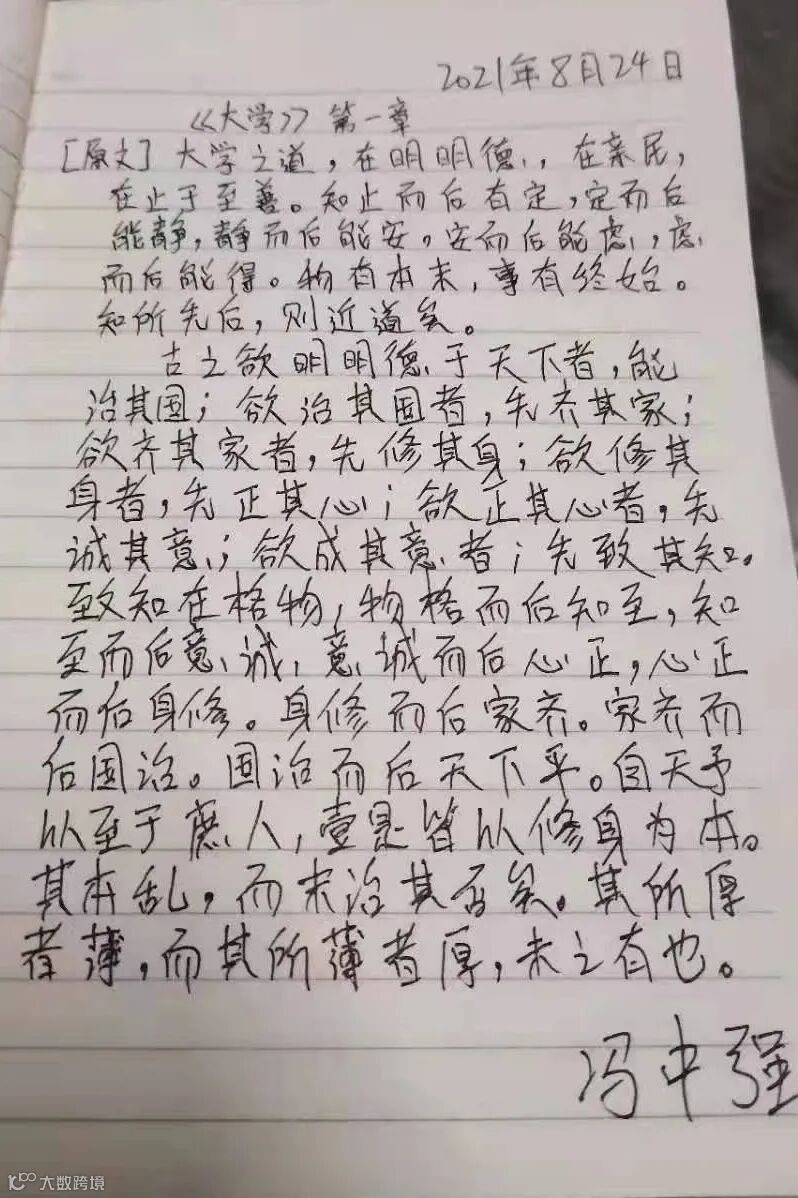 2021年8月24日
《大学》第一章
[原文] 大学之道，在明明德，在亲民，
在止于至善。知止而后有定，定而后
能静，静而后能安，安而后能虑，虑
而后能得。物有本末，事有终始。
知所先后，则近道矣。
古之欲明明德于天下者，能
治其国；欲治其国者，先齐其家；
欲齐其家者，先修其身；欲修其
身者，先正其心；欲正其心者，先
诚其意；欲成其意者；先致其知。
致知在格物，物格而后知至，知
至而后意诚，意诚而后心正，心正
而后身修。身修而后家齐。家齐而
后国治。国治而后天下平。自天予
以至于庶人，壹是皆以修身为本。
其本乱，而末治其否矣。其所厚
者薄，而其所薄者厚，未之有也。
冯中强
100 大数跨境